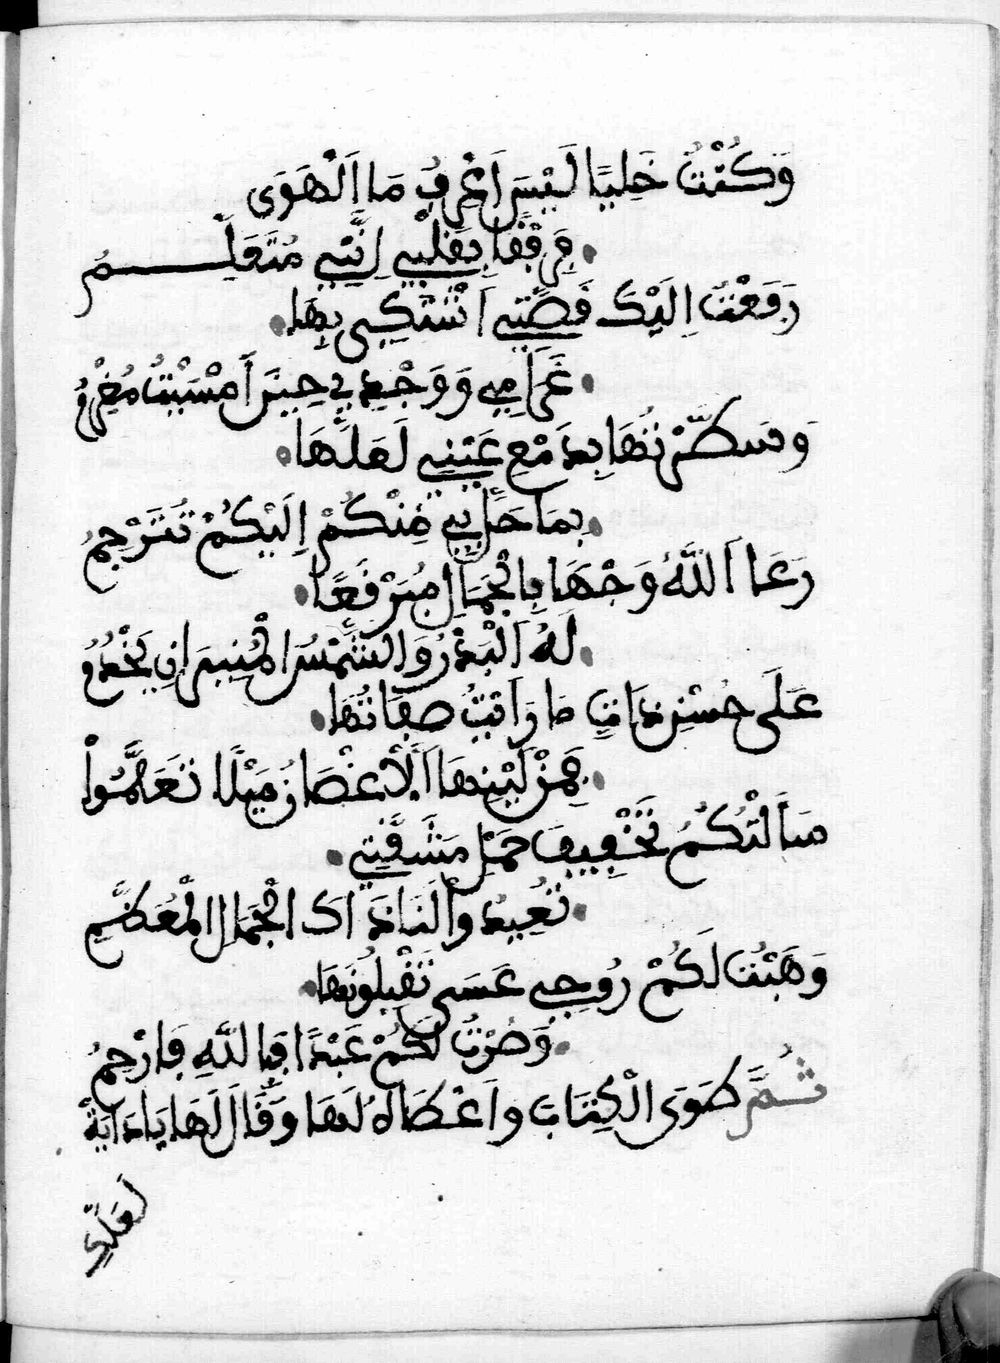 وَكُنْتُ خَلِيًّا لَيْسَ اَعْرِفُ مَا اَلْهَوَى
فَرِفْقًا بِقَلْبِي اِنَّنِي مُتَعَلِّـــمُ
رَفَعْتُ اِلَيْكَ قِصَّتِي اَشْتَكِي بِهَا
غَرَامِي وَوَجْدِي حِينَ أَمْسَيْتُ مُغْرَمُ
وَسَطَّرْتُهَا بِدَمْعِ عَيْنِي لَعَلَّهَا
بِمَا حَلَّ بِي مِنْكُمْ إِلَيْكُمْ تُتَرْجِمُ
رَعَا اَللَّهُ وَجْهًا بِالْجَمَالِ مُبَرْقَعًا
لَهُ اَلْبَدْرُ وَالشَّمْسُ الْمُنِيرَانِ يَخْدُمُ
عَلَى حُسْنِ ذَاتٍ مَا رَاَيْتُ صِفَاتُهَا
فَمِنْ لَيْنِهَا اَلْأَغْصَانُ مَيْلًا تَعَلَّمُواْ
سَأَلْتُكُمُ تَخْفِيفَ حَمْلِ مَشَقَّتِي
تُعِيدُواْ لَنَا ذَاكَ الْجَمَالَ الْمُعَظَّمِ
وَهَبْتُ لَكُمْ رُوحِي عَسَى تَقْبَلُونَهَا
وَصُرْتُ لَكُمْ عَبْدًا فَبِاللَّهِ فَارْحِمُ
ثُمَّ طَوَى الْكِتَابَ وَاَعْطَاهُ لَهَا وَقَالَ لَهَا يَا دَايَةُ